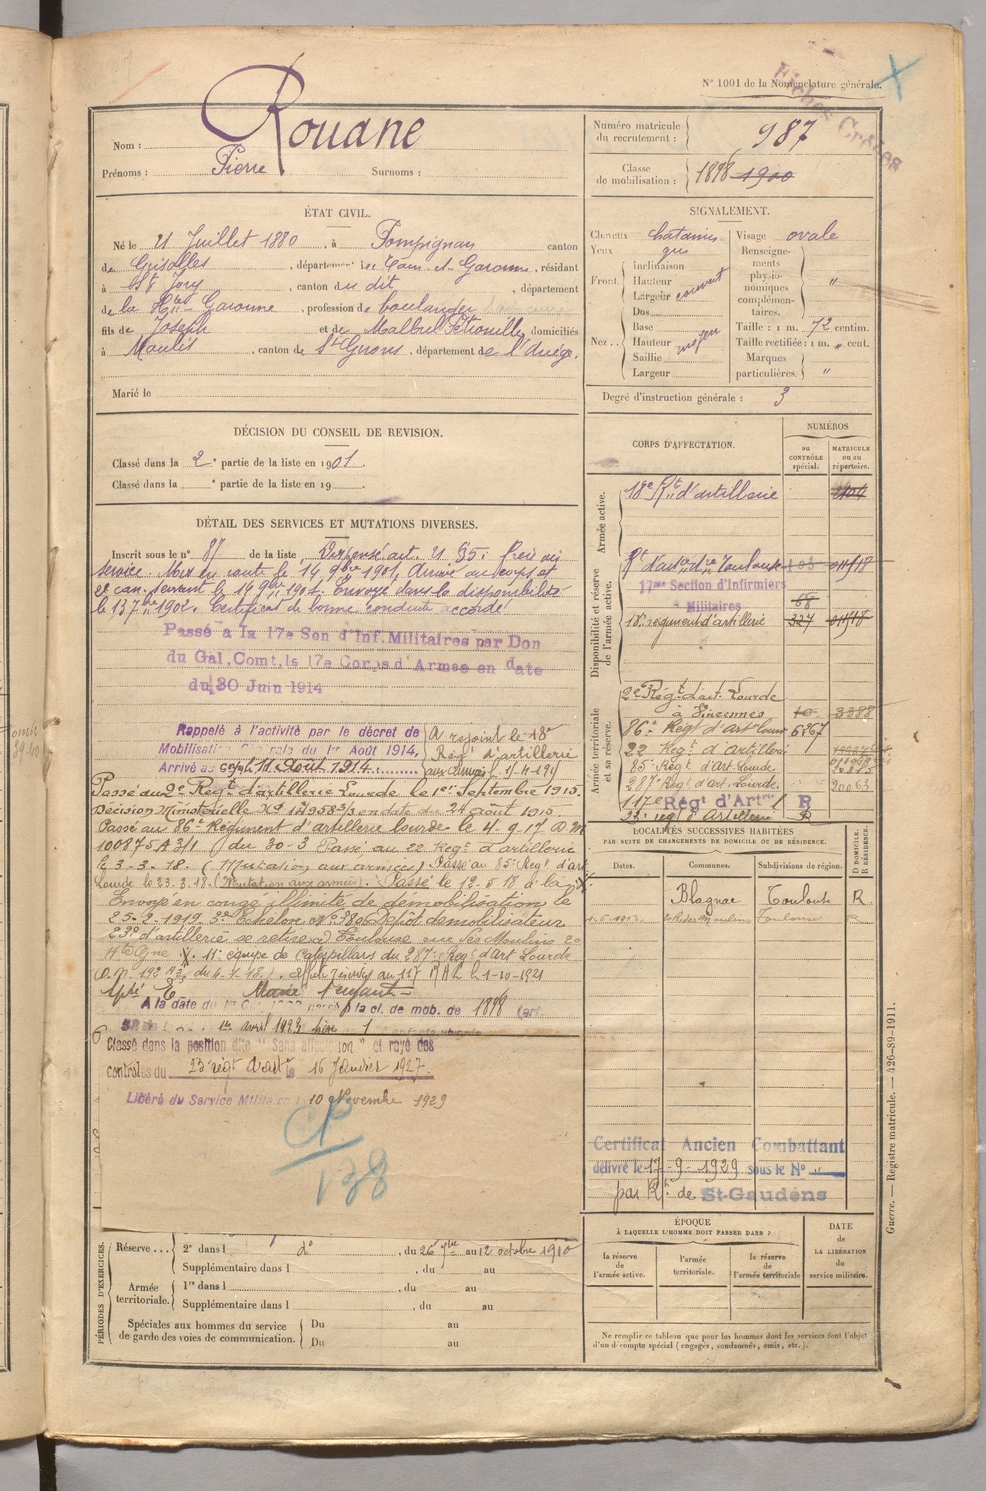 N° 1001 de la Nomenclature générale.
Fiches Créées
Nom : Rouane
Prénoms : Pierre Surnoms :
Numéro matricule du recrutement : 987
Classe de mobilisation : 1898 1900
ÉTAT CIVIL.
Né le 21 Juillet 1880, à Pompignan canton
de Grisolles, département de Tarn-et-Garonne, résidant
à St Jory, canton du dit, département
de la Hte Garonne, profession de boulanger
fils de Joseph et de Malbrel Pétronille, domiciliés
à Moulis, canton de St Girons, département de l'Ariège.
Marié le
SIGNALEMENT.
Cheveux chatains Visage ovale
Yeux gris
Front. Inclinaison
Hauteur
Largeur couvert
Nez.. Dos
Base
Hauteur moyen
Saillie
Largeur
Renseignements physionomiques complémentaires. "
Taille : 1 m. 72 centim.
Taille rectifiée : 1 m. " cent.
Marques particulières. "
Degré d'instruction générale : 3
DÉCISION DU CONSEIL DE REVISION.
Classé dans la 2e partie de la liste en 1901.
Classé dans la e partie de la liste en 19
DÉTAIL DES SERVICES ET MUTATIONS DIVERSES.
Inscrit sous le n° 87 de la liste Dispensé art. 21
service. Mis en route le 14 9bre 1901. Arrivé au corps et
2e can. servant le Envoyé dans la disponibilité
le 13 7bre 1902. Certificat de bonne conduite accordé
Passé à la 17e Son d'Inf. Militaires par Don
du Gal. Comt. le 17e Corps d'Armée en date
du 30 Juin 1914
Rappelé à l'activité par le décret de
Mobilisation Générale du 1er Août 1914,
Arrivé au corps le 11 Août 1914
A rejoint le 18e
Rég. d'artillerie
aux armées le
Passé au 2e Régt d'artillerie Lourde le 1er Septembre 1915.
Décision Ministérielle No en date du 24 août 1915
Passé au 86e Régiment d'artillerie lourde le 4.9.17
100875 A 3/1 du 30-3 Passé au 22 Regt d'artillerie
le 3-3-18. (Mutation aux armées) Passé au 85e Regt d'art
Lourde le 23.3.18. (Mutation aux armées). Passé le 12. 18 à la
Envoyé en congé illimité de démobilisation le
25-2-1919 3e Echelon No Dépôt démobilisateur
23e d'artillerie se retire à Toulouse rue des Moulins 20
Hte Gne X. 11e équipe de Caterpillars du 287e Regt d'art Lourde
le 1-10-1921
A la date du passé à la cl. de mob. de 1898 (art.
1er avril 1923 père 1 enfants vivants
Classé dans la position dite "Sans affectation" et rayé des
contrôles du 23e régt d'artie le 15 Janvier 1927
Libéré du Service Militaire le 10 Novembre 1929
CP
138
CORPS D'AFFECTATION.
NUMÉROS
au CONTRÔLE spécial.
MATRICULE ou au répertoire.
Armée active.
18e Rt d'artillerie 2104
Disponibilité et réserve de l'armée active.
Rt d'artrie de Toulouse
17me Section d'Infirmiers
Militaires 68
18e régiment d'artillerie 327
Armée territoriale et sa réserve.
2e Régt d'art. Lourde
à Vincennes 10 3388
86e Régt d'Art Lourde 6867
22 Regt d'artillerie
85e Régt. d'Art. Lourde.
287e Régt. d'Art. Lourde. 20063
117e Régt d'Artrie R
23e régt d'artillerie R
LOCALITÉS SUCCESSIVES HABITÉES
PAR SUITE DE CHANGEMENTS DE DOMICILE OU DE RÉSIDENCE.
Dates. Communes. Subdivisions de région. D DOMICILE. R RÉSIDENCE.
Blagnac Toulouse R.
Toulouse R
Certificat Ancien Combattant
délivré le 17-9-1929 sous le N° "
par Rt. de St-Gaudens
PÉRIODES D'EXERCICES.
Réserve... 2e dans l d° , du 26 7bre au 12 octobre 1910
Supplémentaire dans l , du au
Armée territoriale. 1re dans l , du au
Supplémentaire dans l , du au
Spéciales aux hommes du service de garde des voies de communication. Du au
Du au
ÉPOQUE
À LAQUELLE L'HOMME DOIT PASSER DANS :
la réserve de l'armée active.
l'armée territoriale.
la réserve de l'armée territoriale
DATE de LA LIBÉRATION du service militaire.
Ne remplir ce tableau que pour les hommes dont les services font l'objet
d'un décompte spécial (engagés, condamnés, omis, etc.).
Guerre. — Registre matricule. — 426-89-1911.